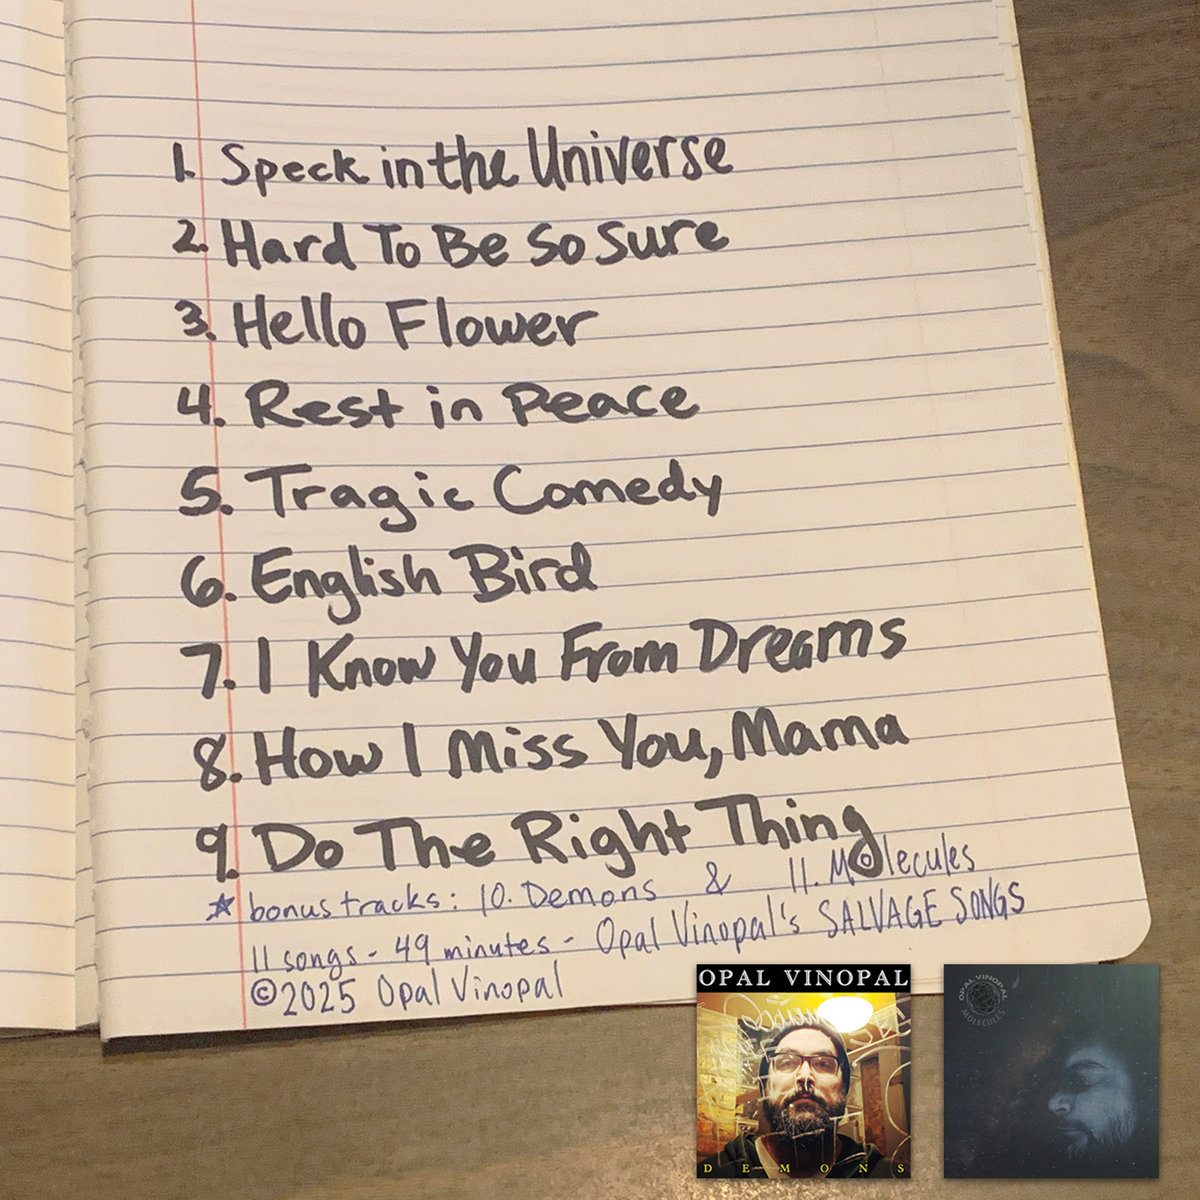 1. Speck in the Universe
2. Hard To Be So Sure
3. Hello Flower
4. Rest in Peace
5. Tragic Comedy
6. English Bird
7. I Know You From Dreams
8. How I Miss You, Mama
9. Do The Right Thing
☆ bonus tracks: 10. Demons & 11. Molecules
11 songs - 49 minutes - Opal Vinopal's SALVAGE SONGS
©2025 Opal Vinopal
OPAL VINOPAL
DEMONS
OPAL VINOPAL
MOLECULES